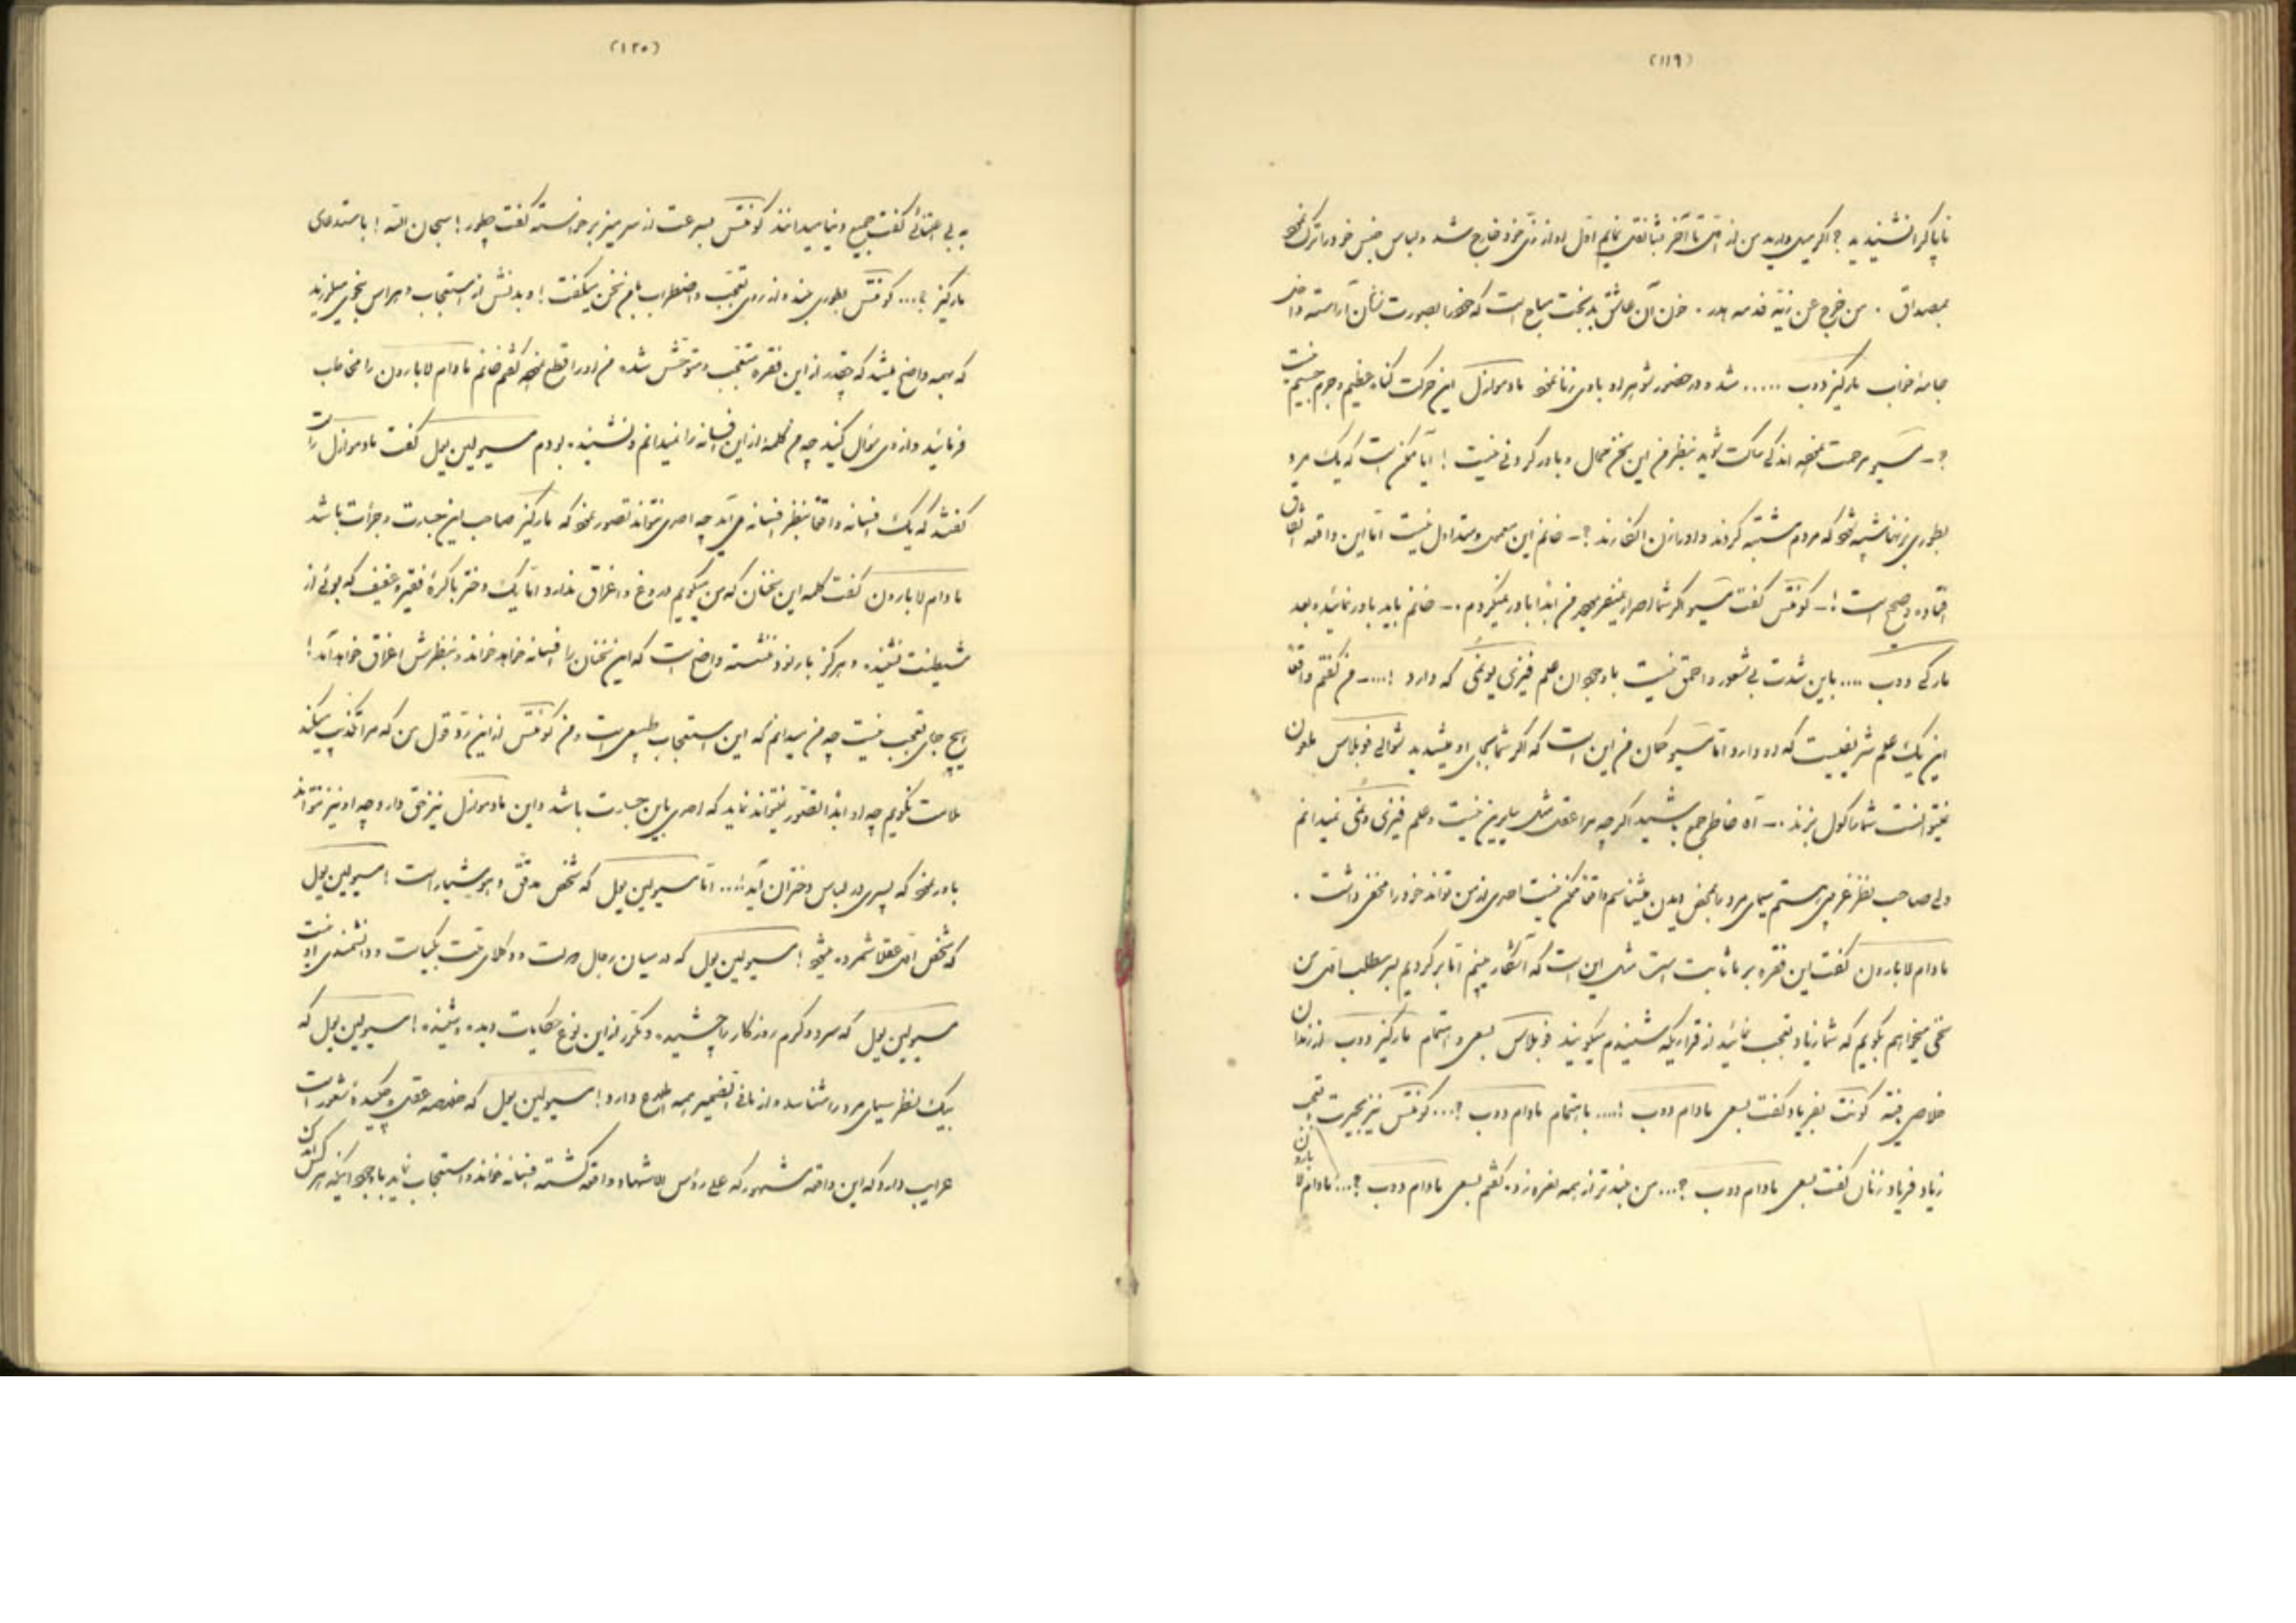 (۱۱۹)
ناپاکرا نشنیدید ؟ اگر میل دارید من از اول تا آخر نقل نمایم اول او از زی خود خارج شد و لباس جنس خود را ترک نمود
بمصداق . من خرج عن زیه فدمه هدر . خون آن عاشق بدبخت مباح است که خود را بصورت زنان آراسته داخل
جامهٔ خواب مارکیز دوب ..... شد و در حضور شوهر او با وی زنا نمود مادموازل این حرکت گناه عظیم و جرم جسیم نیست
؟ ـ مسیو مرحمت نموده اندکی ساکت شوید بنظر من این سخن محال و باور کردنی نیست ! آیا ممکن است که یک مرد
بطوری بزنها شبیه شود که مردم مشتبه گردند و او را زن انگارند ؟ ـ خانم این معمول و متداول نیست اما این واقعه اتفاق
افتاده و صحیح است ! ـ کونتس گفت مسیو اگر شما اصرار نمیفرمودید من ابدا باور نمیکردم . ـ خانم باید باور نمائید و بعد
مارکی دوب .... باین شدت بی شعور و احمق نیست با وجود آن علم فیزیونمی که دارد !.... ـ من گفتم واقعا
این یک علم شریفیست که او دارد اما مسیو گمان من این است که اگر شما بجای او میشدید شوالی فوبلاس ملعون
نمیتوانست شما را گول بزند . ـ آه خاطر جمع باشید اگر چه مرا عقل مثل سایرین نیست و علم فیزیونمی نمیدانم
ولی صاحب نظر غریبی هستم سیمای مرد را بمحض دیدن میشناسم واقعا ممکن نیست احدی از من تواند خود را مخفی داشت .
مادام لابارون گفت این فقره بر ما ثابت است مثل این است که آشکار میبینم اما برگردیم بسر مطلب اول من
سخنی میخواهم بگویم که شما زیاد تعجب نمائید از قراریکه شنیدم میگویند فوبلاس بسعی و اهتمام مارکیز دوب از زندان
خلاصی یافته کونت بفریاد گفت بسعی مادام دوب !.... باهتمام مادام دوب ؟... کونتس نیز بحیرت تعجب
زیاد فریاد زنان گفت بسعی مادام دوب ؟... من بلندتر از همه نعره زده گفتم بسعی مادام دوب ؟... مادام لابارون
(۱۲۰)
به بی اعتنائی گفت جمیع دنیا میدانند کونتس بسرعت از سر میز برخاسته گفت چطور ! سبحان الله ! باستدعای
مارکیز ؟... کونتس بطوری بلند و از روی تعجب و اضطراب این سخن میگفت ! و بدنش از استعجاب و هراس بنحوی میلرزید
که بهمه واضح میشد که چقدر از این فقره متعجب و متوحش شده من او را قطع نموده گفتم خانم مادام لابارون را مخاطب
فرمائید و از وی سؤال کنید چه من کلمهٔ از این افسانه را نمیدانم و نشنیده بودم مسیو لین یول گفت مادموازل راست
گفتند که یک افسانه واقعا بنظر افسانه می‌آید چه احدی نتواند تصور نمود که مارکیز صاحب این جسارت و جرأت باشد
مادام لابارون گفت کلمه این سخنان که من میگویم دروغ و اغراق ندارد اما یک دختر باکرهٔ فقیره عفیف که بوئی از
شیطنت نشنیده و هرگز بار نزد ننشسته واضح است که این سخنان را افسانه خواهد خواند و بنظرش اغراق خواهد آمد !
هیچ جای تعجب نیست چه من میدانم که این استعجاب طبیعی است و من کونتس از این رد قول من که مرا تکذیب میکند
ملامت نگویم چه او ابدا تصور نمیتواند نماید که احدی باین جسارت باشد و این مادموازل نیز حق دارد چه او نیز نتواند
باور نمود که پسری در لباس دختران آید !.... اما مسیو لین یول که شخص مدقق و هوشیار است ! مسیو لین یول
که شخص اول عقلا شمرده میشود ! مسیو لین یول که در میان رجال دولت و وکلای ملت بکیاست و دانشمندی او نیست
مسیو لین یول که سرد و گرم روزگار را چشیده و مکرر از این نوع حکایات دیده و شنیده ! مسیو لین یول که
بیک نظر سیمای مرد را شناسد و از مافی الضمیر همه اطلاع دارد ! مسیو لین یول که خلاصه عقل و چکیدهٔ شعور است
غرایب دارد که این واقعه مشهور که علی رؤس الاشهاد واقع گشته افسانه خواند و استعجاب نماید با وجود اینکه هر کس